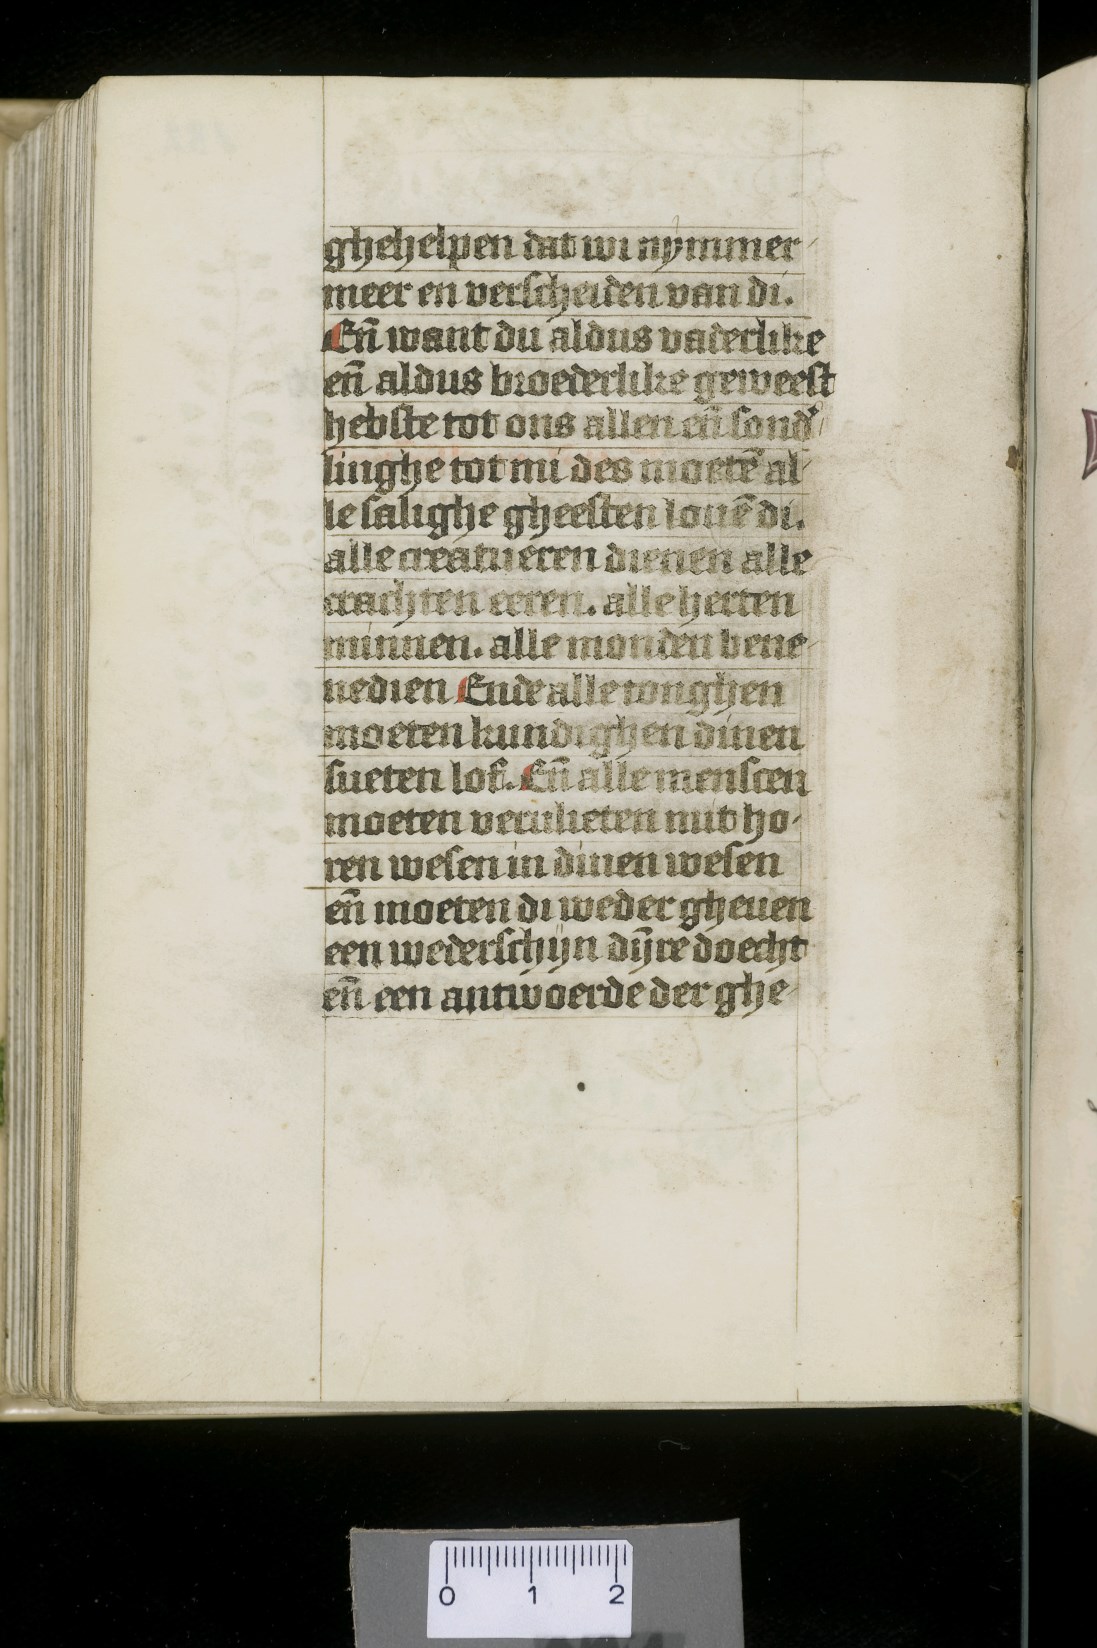 ghehelpen dat wi nymmer
meer en verscheiden van di.
Eñ want du aldus vaderlike
eñ aldus broederlike geweest
hebste tot ons allen eñ sond᷎
linghe tot mi des moetē al
le salighe gheesten louē di.
alle creatueren dienen alle
crachten eeren. alle herten
minnen. alle monden bene
nedien Ende alle tonghen
moeten kundighen dinen
sueten lof. Eñ alle menscen
moeten vervlieten mit ho
ren wesen in dinen wesen
eñ moeten di weder gheuen
een wederschijn dijre doecht
eñ een antwoerde der ghe
0 1 2